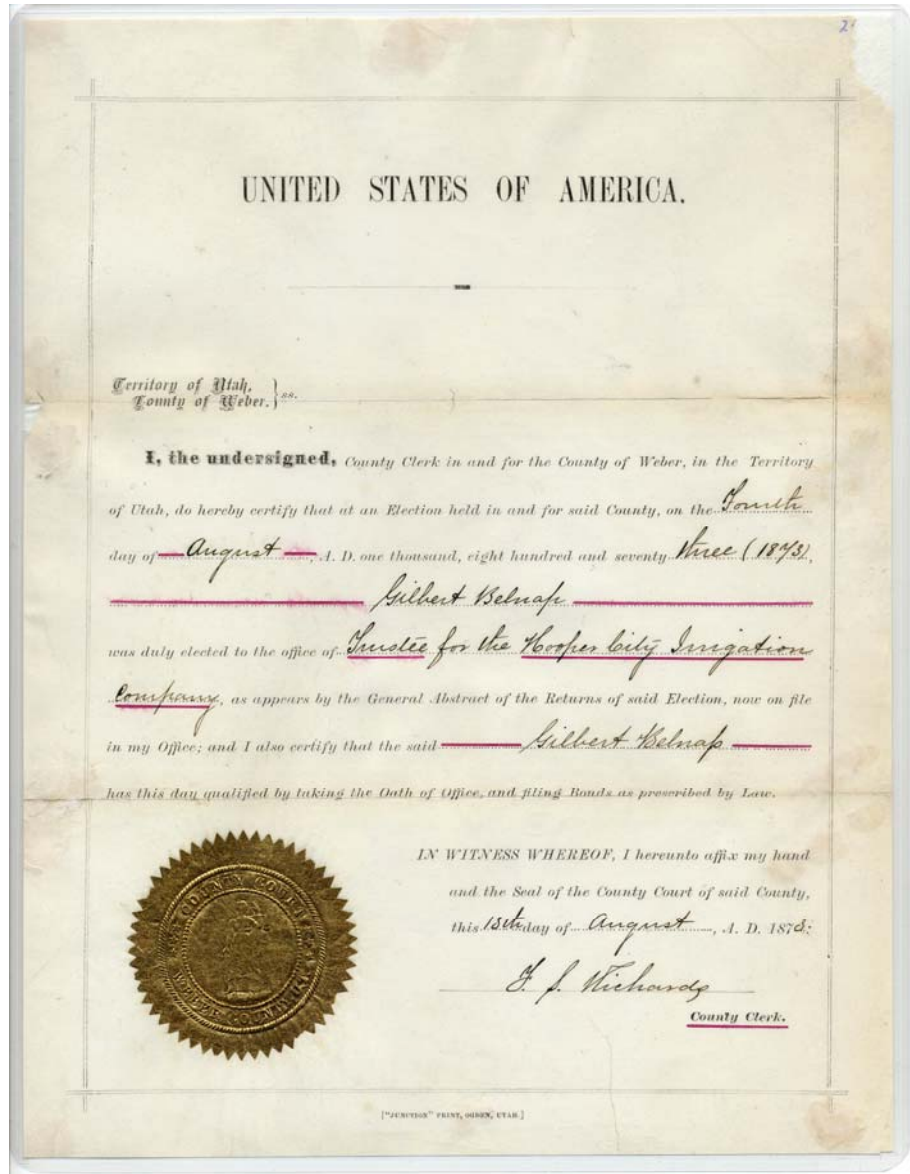 2
UNITED STATES OF AMERICA.
Territory of Utah,
County of Weber. } ss.
I, the undersigned, County Clerk in and for the County of Weber, in the Territory
of Utah, do hereby certify that at an Election held in and for said County, on the Fourth
day of August, A. D. one thousand, eight hundred and seventy three (1873),
Gilbert Belnap
was duly elected to the office of Trustee for the Hooper City Irrigation
Company, as appears by the General Abstract of the Returns of said Election, now on file
in my Office; and I also certify that the said Gilbert Belnap
has this day qualified by taking the Oath of Office, and filing Bonds as prescribed by Law.
IN WITNESS WHEREOF, I hereunto affix my hand
and the Seal of the County Court of said County,
this day of August, A. D. 1873.
F. S. Richards
County Clerk.
COUNTY COURT
WEBER COUNTY
["JUNCTION" PRINT, OGDEN, UTAH.]